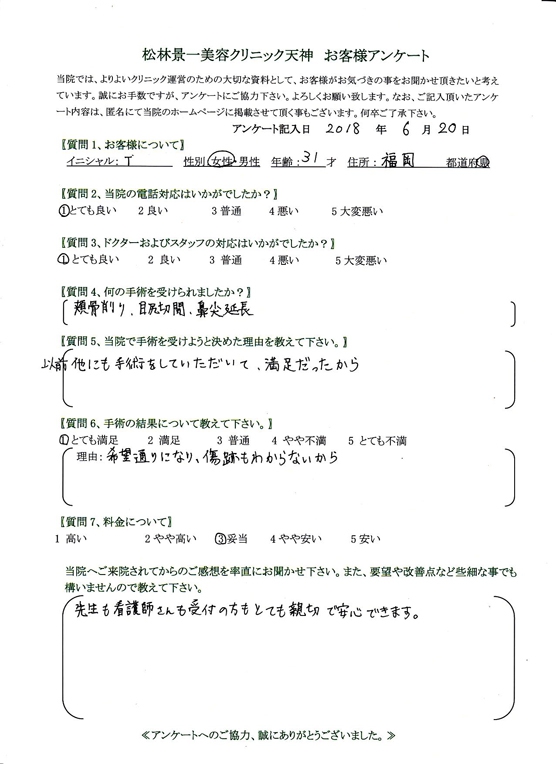 松林景一美容クリニック天神 お客様アンケート
当院では、よりよいクリニック運営のための大切な資料として、お客様がお気づきの事をお聞かせ頂きたいと考え
ています。誠にお手数ですが、アンケートにご協力下さい。よろしくお願い致します。なお、ご記入頂いたアンケ
ート内容は、匿名にて当院のホームページに掲載させて頂く事もございます。何卒ご了承下さい。
アンケート記入日 2018 年 6 月 20 日
〖質問1、お客様について〗
イニシャル:T 性別 女性・男性 年齢:31才 住所:福岡 都道府県
〖質問2、当院の電話対応はいかがでしたか?〗
1とても良い 2 良い 3 普通 4 悪い 5 大変悪い
〖質問3、ドクターおよびスタッフの対応はいかがでしたか?〗
1とても良い 2 良い 3 普通 4 悪い 5 大変悪い
〖質問4、何の手術を受けられましたか?〗
頬骨削り、目尻切開、鼻尖延長
〖質問5、当院で手術を受けようと決めた理由を教えて下さい。〗
以前他にも手術をしていただいて、満足だったから
〖質問6、手術の結果について教えて下さい。〗
1とても満足 2 満足 3 普通 4 やや不満 5 とても不満
理由:希望通りになり、傷跡もわからないから
〖質問7、料金について〗
1 高い 2 やや高い 3妥当 4 やや安い 5 安い
当院へご来院されてからのご感想を率直にお聞かせ下さい。また、要望や改善点など些細な事でも
構いませんので教えて下さい。
先生も看護師さんも受付の方もとても親切で安心できます。
≪アンケートへのご協力、誠にありがとうございました。≫